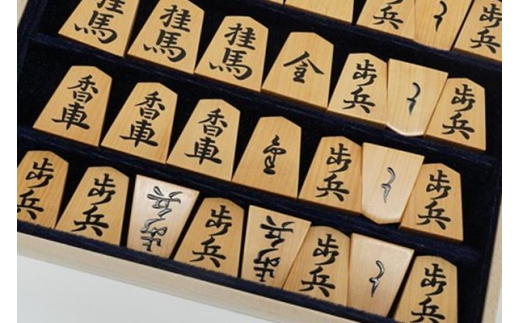 歩兵 と 歩兵
桂馬 桂馬 桂馬 全 歩兵 と 歩兵
香車 香車 香車 歩兵 と 歩兵
歩兵 歩兵 歩兵 歩兵 歩兵 歩兵 と 歩兵